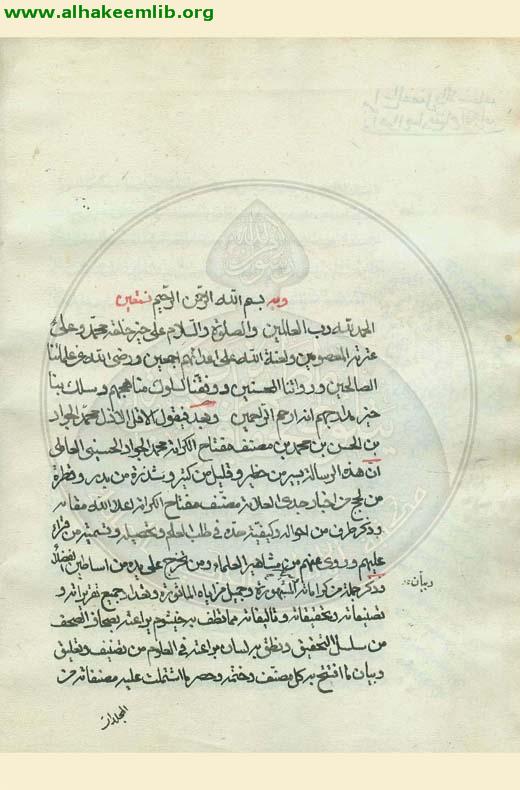 www.alhakeemlib.org
وبه بسم الله الرحمن الرحيم نستعين
الحمد لله رب العالمين والصلوة والسلام على خير خلقه محمد وعلى
عترته المعصومين ولعنة الله على اعدائهم اجمعين ورضى الله عن علمائنا
الصالحين ورواتنا المحسنين ووفقنا لسلوك مناهجهم وسلك بنا
خير مدارجهم انه ارحم الراحمين وبعد فيقول الاقل الاذل محمد الجواد
بن الحسن بن محمد بن مصنف مفتاح الكرامة محمد الجواد الحسيني العاملي
ان هذه الرسالة يسير من خطير وقليل من كثير وشذرة من بدر وقطرة
من لجج من اخبار جدي العلامة مصنف مفتاح الكرامة اعلا الله مقامه
وذكر طرف من احواله وكيفية جده في طلب العلم وتحصيله وتسمية من قرأ
عليهم وروى عنهم من مشاهير العلماء ومن تخرج على يده من اساطين الفضلاء
وبيان
وذكر جملة من كراماته المشهورة وجميل مزاياه المأثورة وتعداد جميع تقريراته و
تصنيفاته وتحقيقاته وتاليفاته مما نظف به خيشوم يراعته بصحاف الصحف
من سلسل التحقيق ونطق به لسان براعته في العلوم من تصنيف وتعليق
وبيان ما افتتح به كل مصنف وختمه وحصر ما اشتملت عليه مصنفاته من
المجلدات